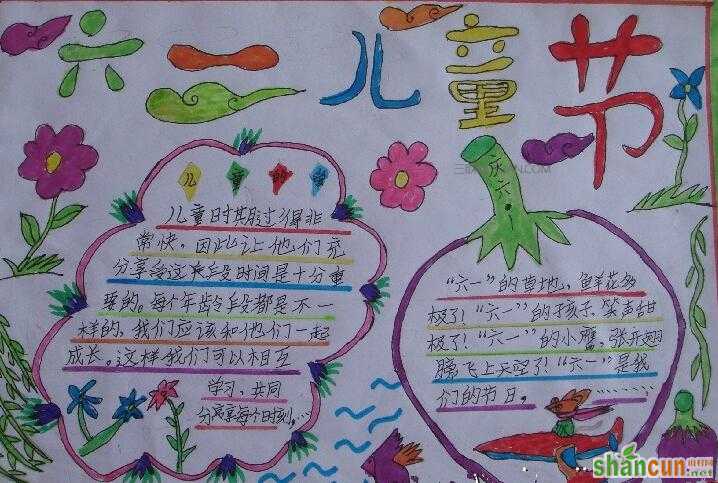 六一儿童节
庆六一！
儿童的
儿童时期过得非
常快，因此让他们充
分享受这段时间是十分重
要的。每个年龄段都是不一
样的，我们应该和他们一起
成长。这样我们可以相互
学习、共同
分享每个时刻....
“六一”的草地，鲜花多
极了！“六一”的孩子、笑声甜
极了！“六一”的小鹰、张开翅
膀飞上天空了！“六一”是我
们的节日。
shancun
.net